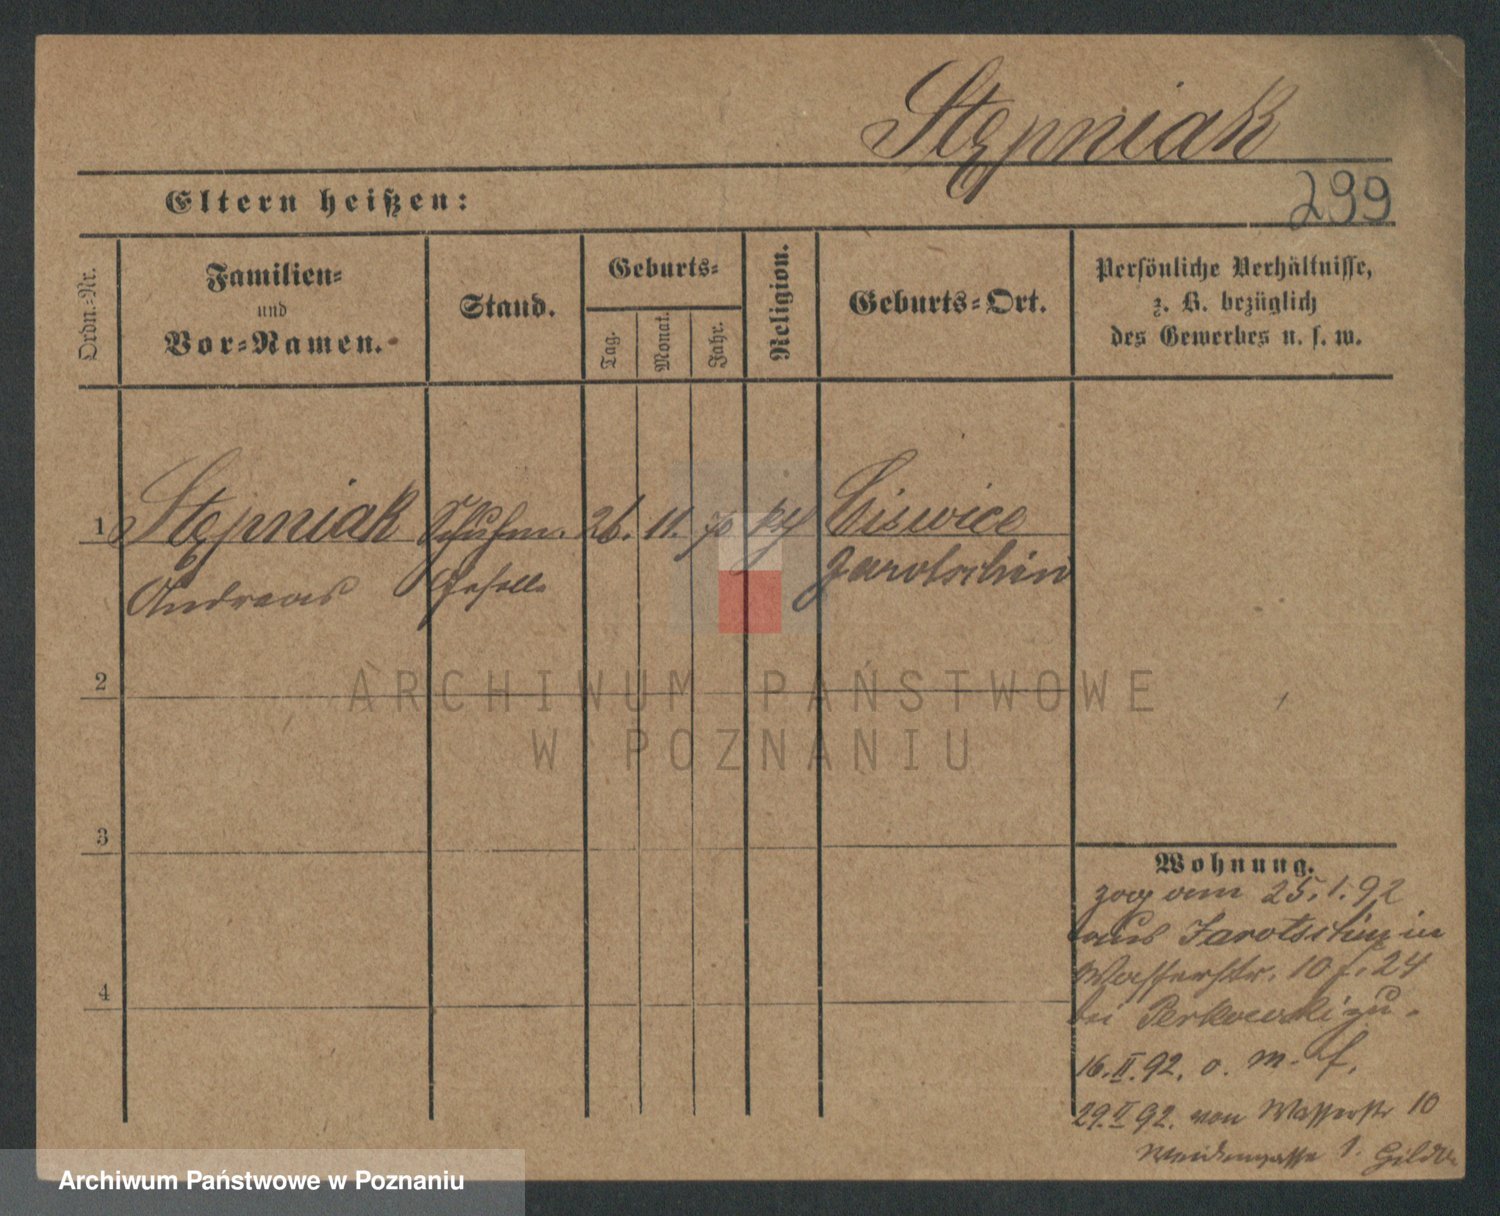 Stępniak
Eltern heißen:
299
Ordn.=Nr.
Familien=
und
Vor=Namen.
Stand.
Geburts=
Tag.
Monat.
Jahr.
Religion.
Geburts=Ort.
Persönliche Verhältnisse,
z. B. bezüglich
des Gewerbes u. s. w.
1 Stępniak Schuhm. 26. 11. 70 Ciswice
Andreas Geselle Jarotschin
2
3
4
Wohnung.
zog am 25.1.92
aus Jarotschin in
Wasserstr. 10 24
bei Perkowski zu.
16.II.92. o. m.
29. 92. von Wasserstr 10
1.
ARCHIWUM PAŃSTWOWE
W POZNANIU
Archiwum Państwowe w Poznaniu